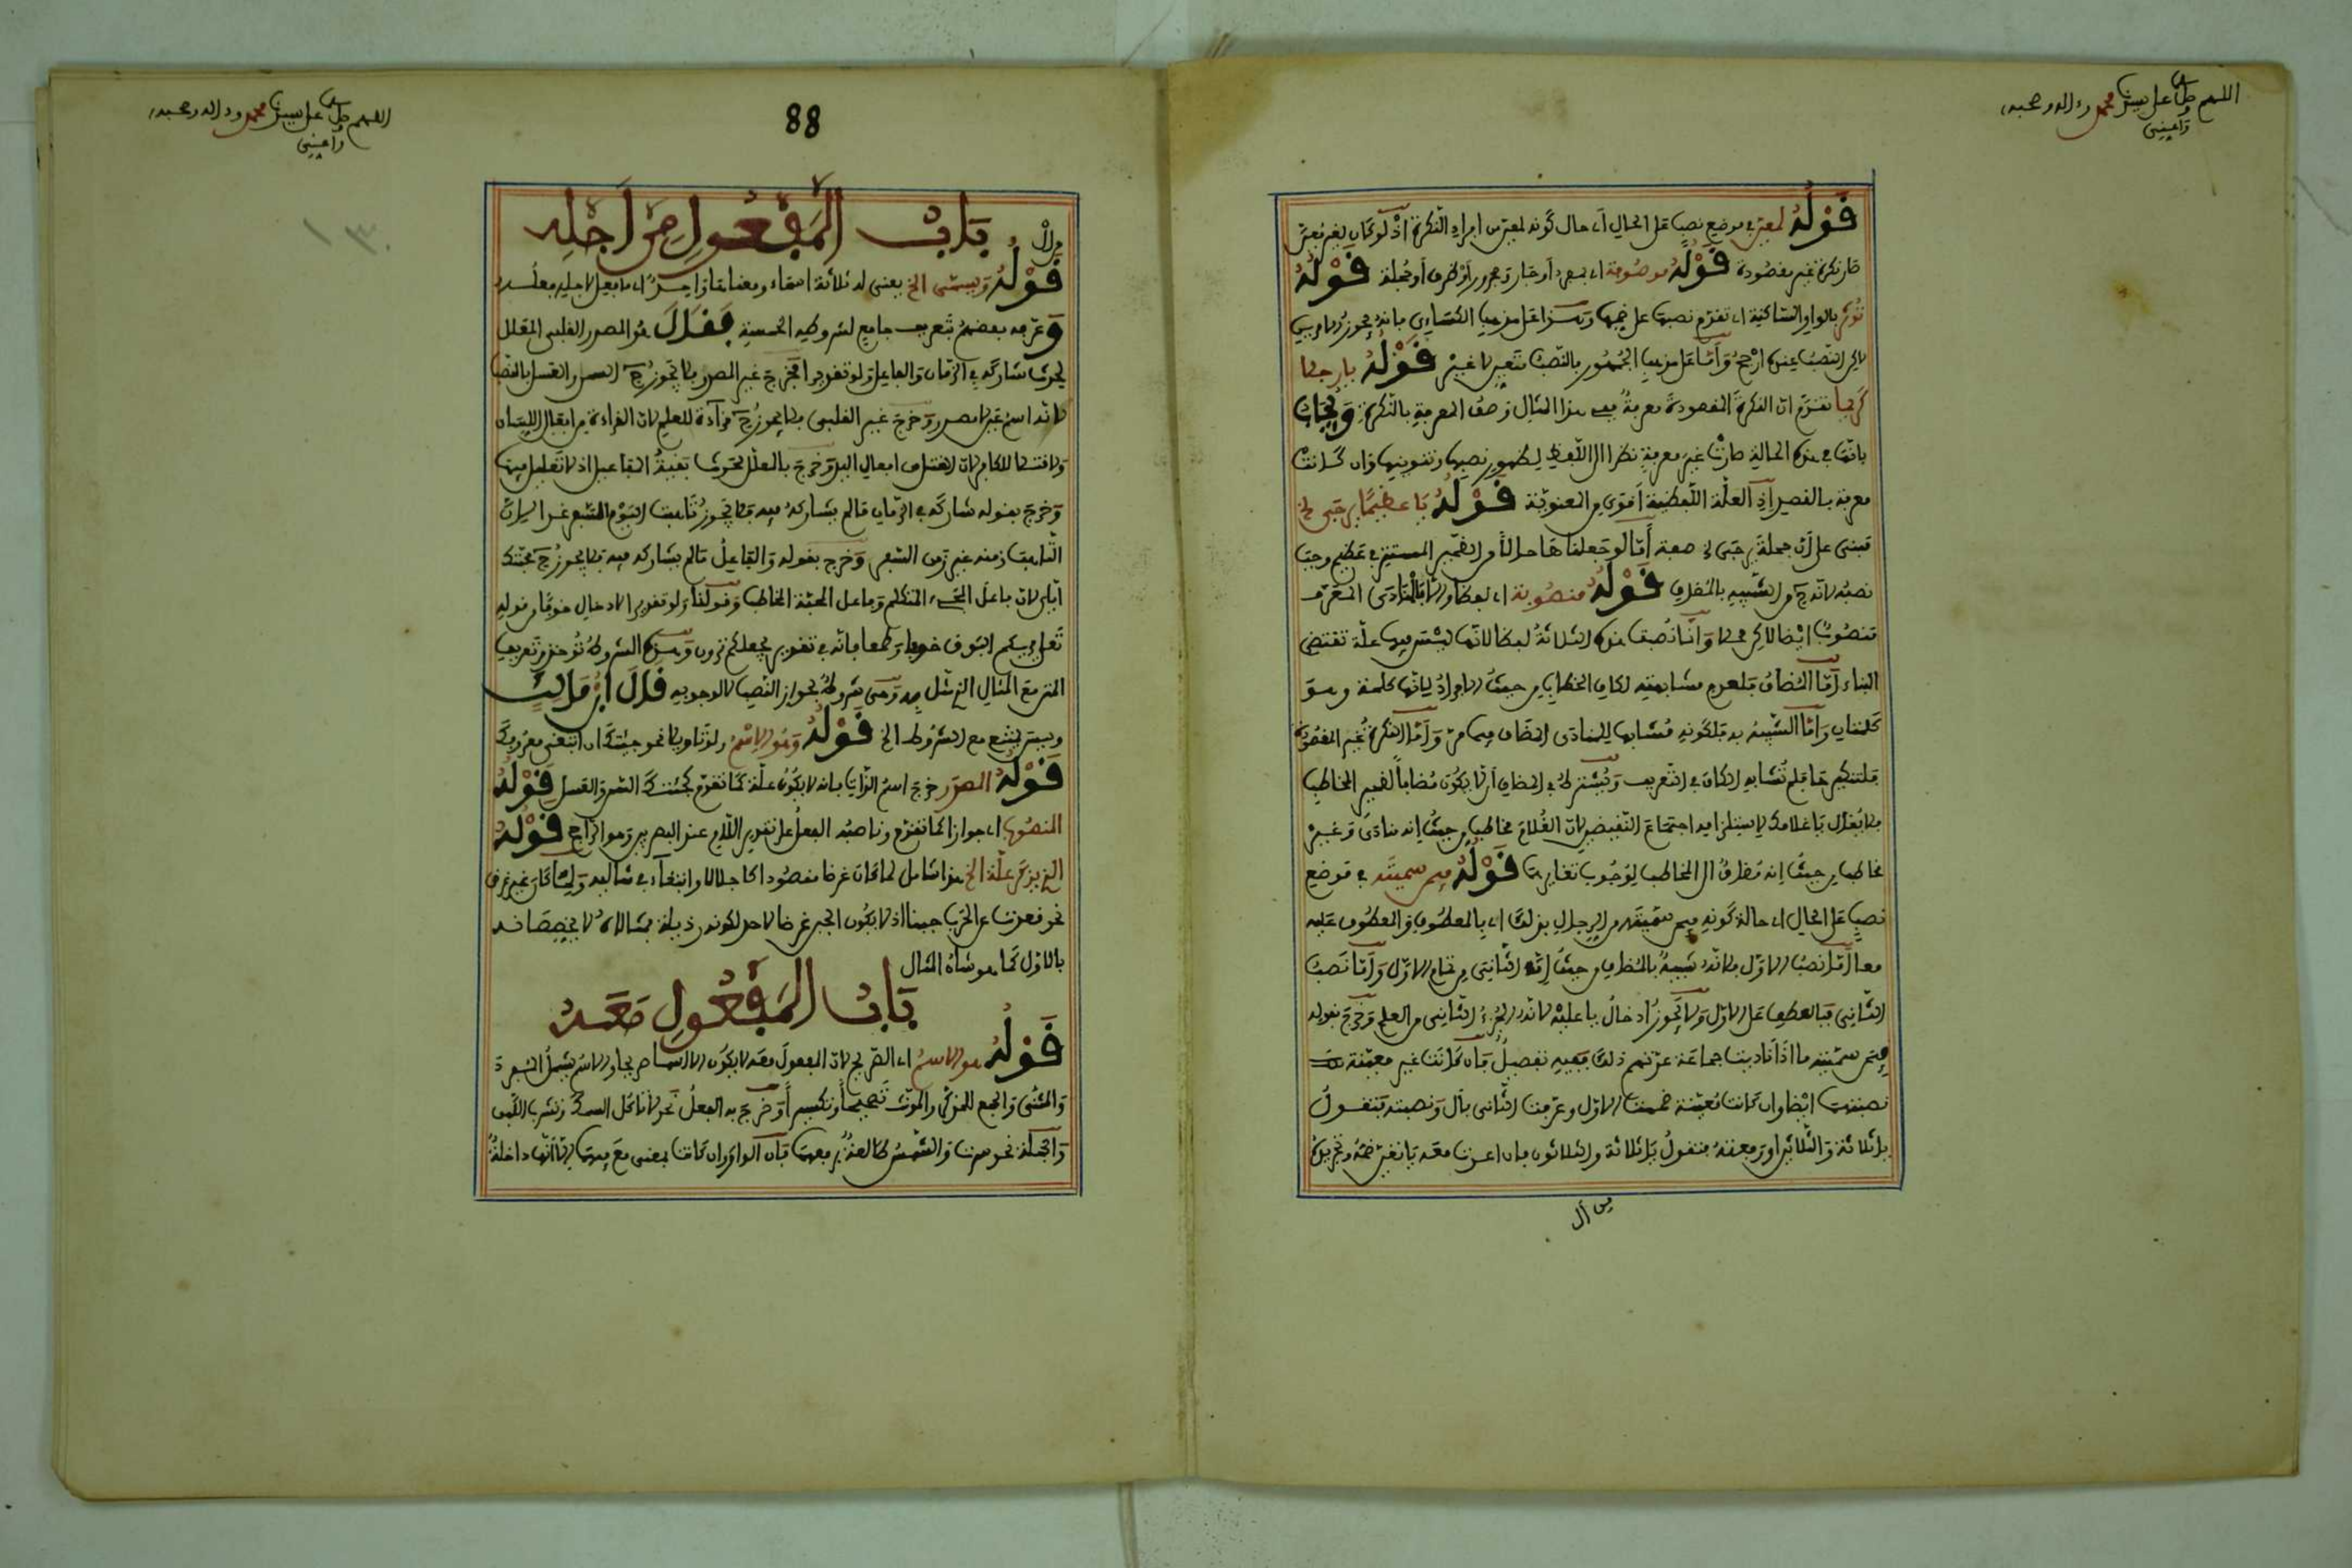 اللهم صل على سيدنا محمد وءاله وصحبه
وأعيني
قوله لمعين في موضع نصب على الحال أي حال كونه لمعين من أفراد النكرة إذ لو كان لغير معين
صار نكرة غير مقصودة قوله موصوفة أي بمفرد أو جار ومجرور أو ظرف أو جملة قوله
بالواو الساكنة أي تقدم نصبها على ضمها وهذا على مذهب الكسائي بأنه يجوز
لكن النصب عنده أرجح وأما على مذهب الجمهور بالنصب متعين لا غير قوله يا رجلا
كريما تقدم أن النكرة المقصودة معرفة ففي هذا المثال وصف المعرفة بالنكرة ويجاب
بأنها في هذه الحالة صارت غير معرفة نظرا إلى اللفظ لظهور نصبها وتنوينها وإن كانت
معرفة بالقصد إذ العلة اللفظية أقوى من المعنوية قوله يا عظيما يرجى الخ
مبني على أن جملة يرجى الخ صفة أما لو جعلناها حالا من الضمير المستتر في عظيم وجب
نصبه لأنه ح من الشبيه بالمضاف قوله منصوبة أي لفظا وإلا فالمنادى المعرف
منصوب أيضا لكن محلا وإنما نصبت هذه الثلاثة لفظا لأنها ليست فيها علة تقتضي
البناء أما المضاف فلعدم مشابهته لكاف الخطاب من حيث الإفراد لأنها كلمة وهو
كلمتان وأما الشبيه به فلكونه مشابها للمنادى المضاف فيما مر وأما النكرة غير المقصودة
فلتنكيرها فلم تشابه الكاف في التعريف ويشترط في المضاف أن لا يكون مضافا لضمير المخاطب
فلا يقال يا غلامك لاستلزامه اجتماع النقيضين لأن الغلام مخاطب من حيث إنه منادى وغير
مخاطب من حيث إنه مضاف إلى المخاطب لوجوب تغايرهما قوله فيمن سميته في موضع
نصب على الحال أي حالة كونه فيمن سميته من الرجال بذلك أي بالمعطوف والمعطوف عليه
معا أما نصب الأول فلأنه شبيه بالمضاف من حيث إن الثاني من تمام الأول وأما نصب
الثاني فبالعطف على الأول ولا يجوز إدخال يا عليه لأنه الجزء الثاني من العلم وخرج بقوله
فيمن سميته ما إذا ناديت جماعة عدتهم ذلك ففيه تفصيل فإن كانت غير معينة
نصبتهما أيضا وإن كانت معينة ضممت الأول وعرفت الثاني بأل ونصبته فتقول
يا ثلاثة والثلاثين أو رفعته فتقول يا ثلاثة والثلاثون فإن أعدت معه يا تعين ضمه وتجريده
من أل
اللهم صل على سيدنا محمد وءاله وصحبه
وأعيني
88
١٣٠
باب المفعول من أجله
قوله ويسمى الخ يعني له ثلاثة أسماء ومعناها واحد أي ما فعل لأجله فعل
وعرفه بعضهم بتعريف جامع لشروطه الخمسة فقال هو المصدر القلبي المعلل
لحدث شاركه في الزمان والفاعل ولو تقديرا فخرج غير المصدر فلا يجوز ح السمن والعسل بالنصب
لأنه اسم عين لا مصدر وخرج غير القلبي فلا يجوز ح قراءة للعلم لأن القراءة من أفعال اللسان
ولا قتلا للكافر لأن القتل من أفعال اليد وخرج بالمعلل لحدث بقية المفاعيل إذ لا تعليل فيها
وخرج بقوله شاركه في الزمان ما لم يشاركه فيه فلا يجوز تأهبت اليوم السفر غدا لأن
التأهب زمنه غير زمن السفر وخرج بقوله والفاعل ما لم يشاركه فيه فلا يجوز ح محبتك
إياي لأن فاعل المجيء المتكلم وفاعل المحبة المخاطب وقولنا ولو تقديرا لإدخال خوفا من قوله
تعالى يريكم البرق خوفا وطمعا فإنه في تقدير يجعلكم ترون وهذه الشروط تؤخذ من تعريف
المتن مع المثال الذي مثل به وهي شروط لجواز النصب لا لوجوبه قال ابن مالك
وليس يمتنع مع الشروط الخ قوله وهو الاسم ولو تأويلا نحو جئتك أن أبتغي معروفك
قوله المصدر خرج اسم الذات فإنه لا يكون علة كما تقدم كجئتك السمن والعسل قوله
المنصوب أي جوازا كما تقدم وناصبه الفعل على تقدير اللام عند البصريين وهو الراجح قوله
الذي يذكر علة الخ هذا شامل لما كان غرضا مقصودا كإجلالا وابتغاء في مثاليه ولما كان غير غرض
نحو قعدت عن الحرب جبنا إذ لا يكون الجبن غرضا لأحد لكونه رذيلة فمثالاه لا يخصصانه
بالأول كما هو شأن المثال
باب المفعول معه
قوله هو الاسم أي الصريح لأن المفعول معه لا يكون إلا اسما صريحا والاسم يشمل المفرد
والمثنى والجمع المذكر والمؤنث تصحيحا وتكسيرا وخرج به الفعل نحو لا تأكل السمك وتشرب اللبن
والجملة نحو سرت والشمس طالعة برفعهما فإن الواو وإن كانت بمعنى مع فيهما إلا أنها داخلة